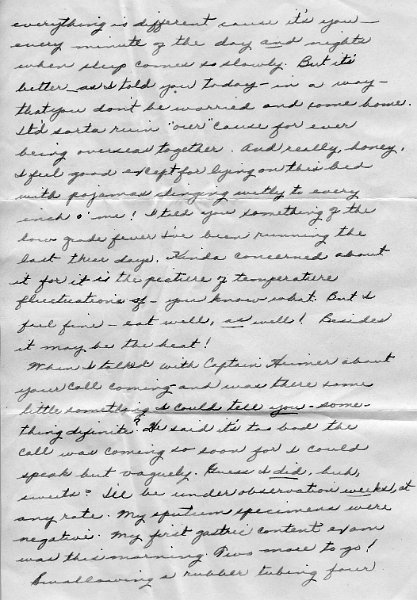 everything is different cause it's you —
every minute of the day and nights
when sleep comes so slowly. But it's
better as I told you today — in a way —
that you don't be worried and come home.
It'd sorta ruin "our" cause for ever
being overseas together. And really, honey,
I feel good except for lying on this bed
with pajamas clinging wetly to every
inch o' me! I told you something of the
low grade fever I've been running the
last three days. Kinda concerned about
it for it is the picture of temperature
fluctuations of — you know what. But I
feel fine — eat well, as well! Besides
it may be the heat!
When I talked with Captain Heimer about
your call coming — and was there some
little something I could tell you — some-
thing definite? He said it's too bad the
call was coming so soon for I could
speak but vaguely. Guess I did, huh,
sweets? I'll be under observation weeks, at
any rate. My sputum specimens were
negative. My first gastric content exam
was this morning. Two more to go!
Swallowing a rubber tubing four